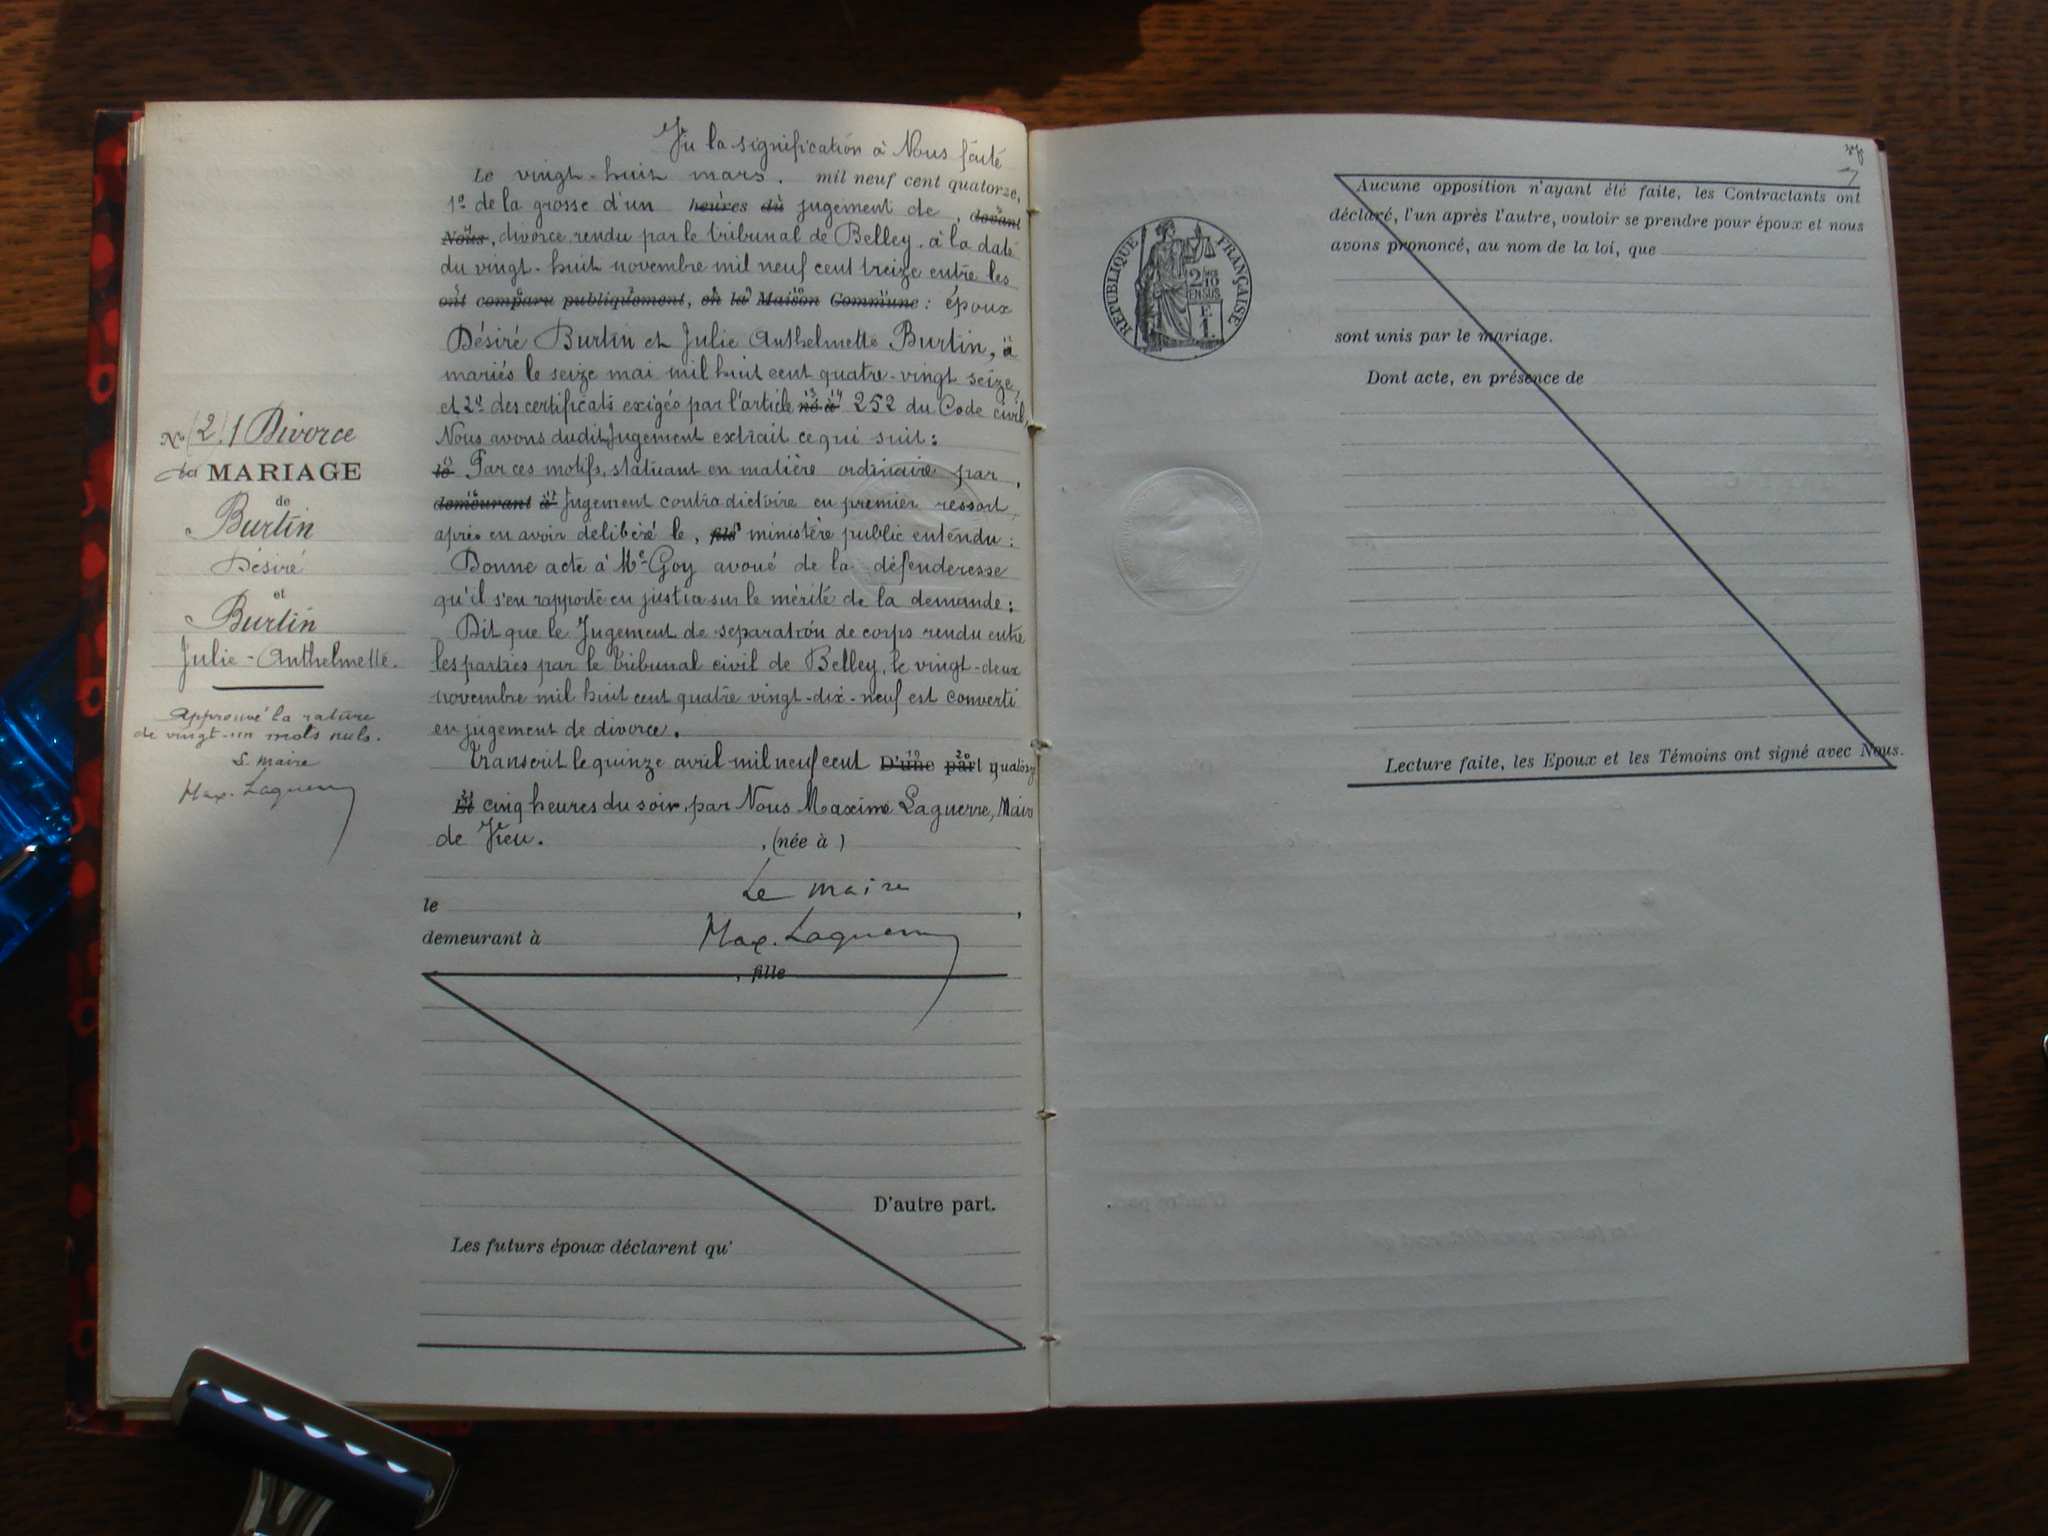 Vu la signification à Nous faite
Le vingt-huit mars. mil neuf cent quatorze,
1º de la grosse d'un heures du jugement de , devant
Nous, divorce rendu par le tribunal de Belley. à la date
du vingt-huit novembre mil neuf cent treize entre les
ont comparu publiquement, en la Maison Commune : époux
Désiré Burtin et Julie Anthelmette Burtin, à
mariés le seize mai mil huit cent quatre-vingt seize,
et 2º des certificats exigés par l'article né à 252 du Code civil,
Nous avons dudit Jugement extrait ce qui suit :
le Par ces motifs, statuant en matière ordinaire par ,
demeurant à Jugement contradictoire en premier ressort,
après en avoir délibéré le , fils ministère public entendu :
Donne acte à Me Goy avoué de la défenderesse
qu'il s'en rapporte en justice sur le mérite de la demande ;
Dit que le Jugement de séparation de corps rendu entre
les parties par le tribunal civil de Belley, le vingt-deux
novembre mil huit cent quatre vingt-dix-neuf est converti
en jugement de divorce.
Transcrit le quinze avril mil neuf cent D'une part quatorze
Et cinq heures du soir, par Nous Maxime Laguerre, Maire
de Vieu. , (née à )
Le maire
le ,
demeurant à Max. Laguerre
, fille
D'autre part.
Les futurs époux déclarent qu'
No (2) 1 Divorce
du MARIAGE
de
Burtin
Désiré
et
Burtin
Julie-Anthelmette.
Approuvé la rature
de vingt-un mots nuls.
L. maire
Max. Laguerre
RÉPUBLIQUE FRANÇAISE
2/10
EN SUS
F.
1.
Aucune opposition n'ayant été faite, les Contractants ont
déclaré, l'un après l'autre, vouloir se prendre pour époux et nous
avons prononcé, au nom de la loi, que
sont unis par le mariage.
Dont acte, en présence de
Lecture faite, les Epoux et les Témoins ont signé avec Nous.